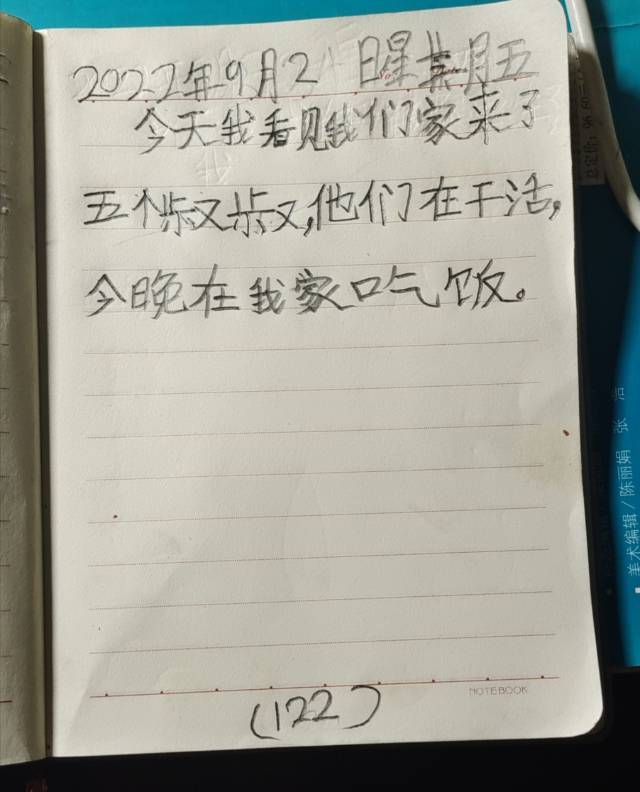 2022年9月2日星其月五
今天我看见我们家来了
五个叔叔,他们在干活,
今晚在我家口气饭。
NOTEBOOK
(122)
美术编辑/陈丽娟 张 浩